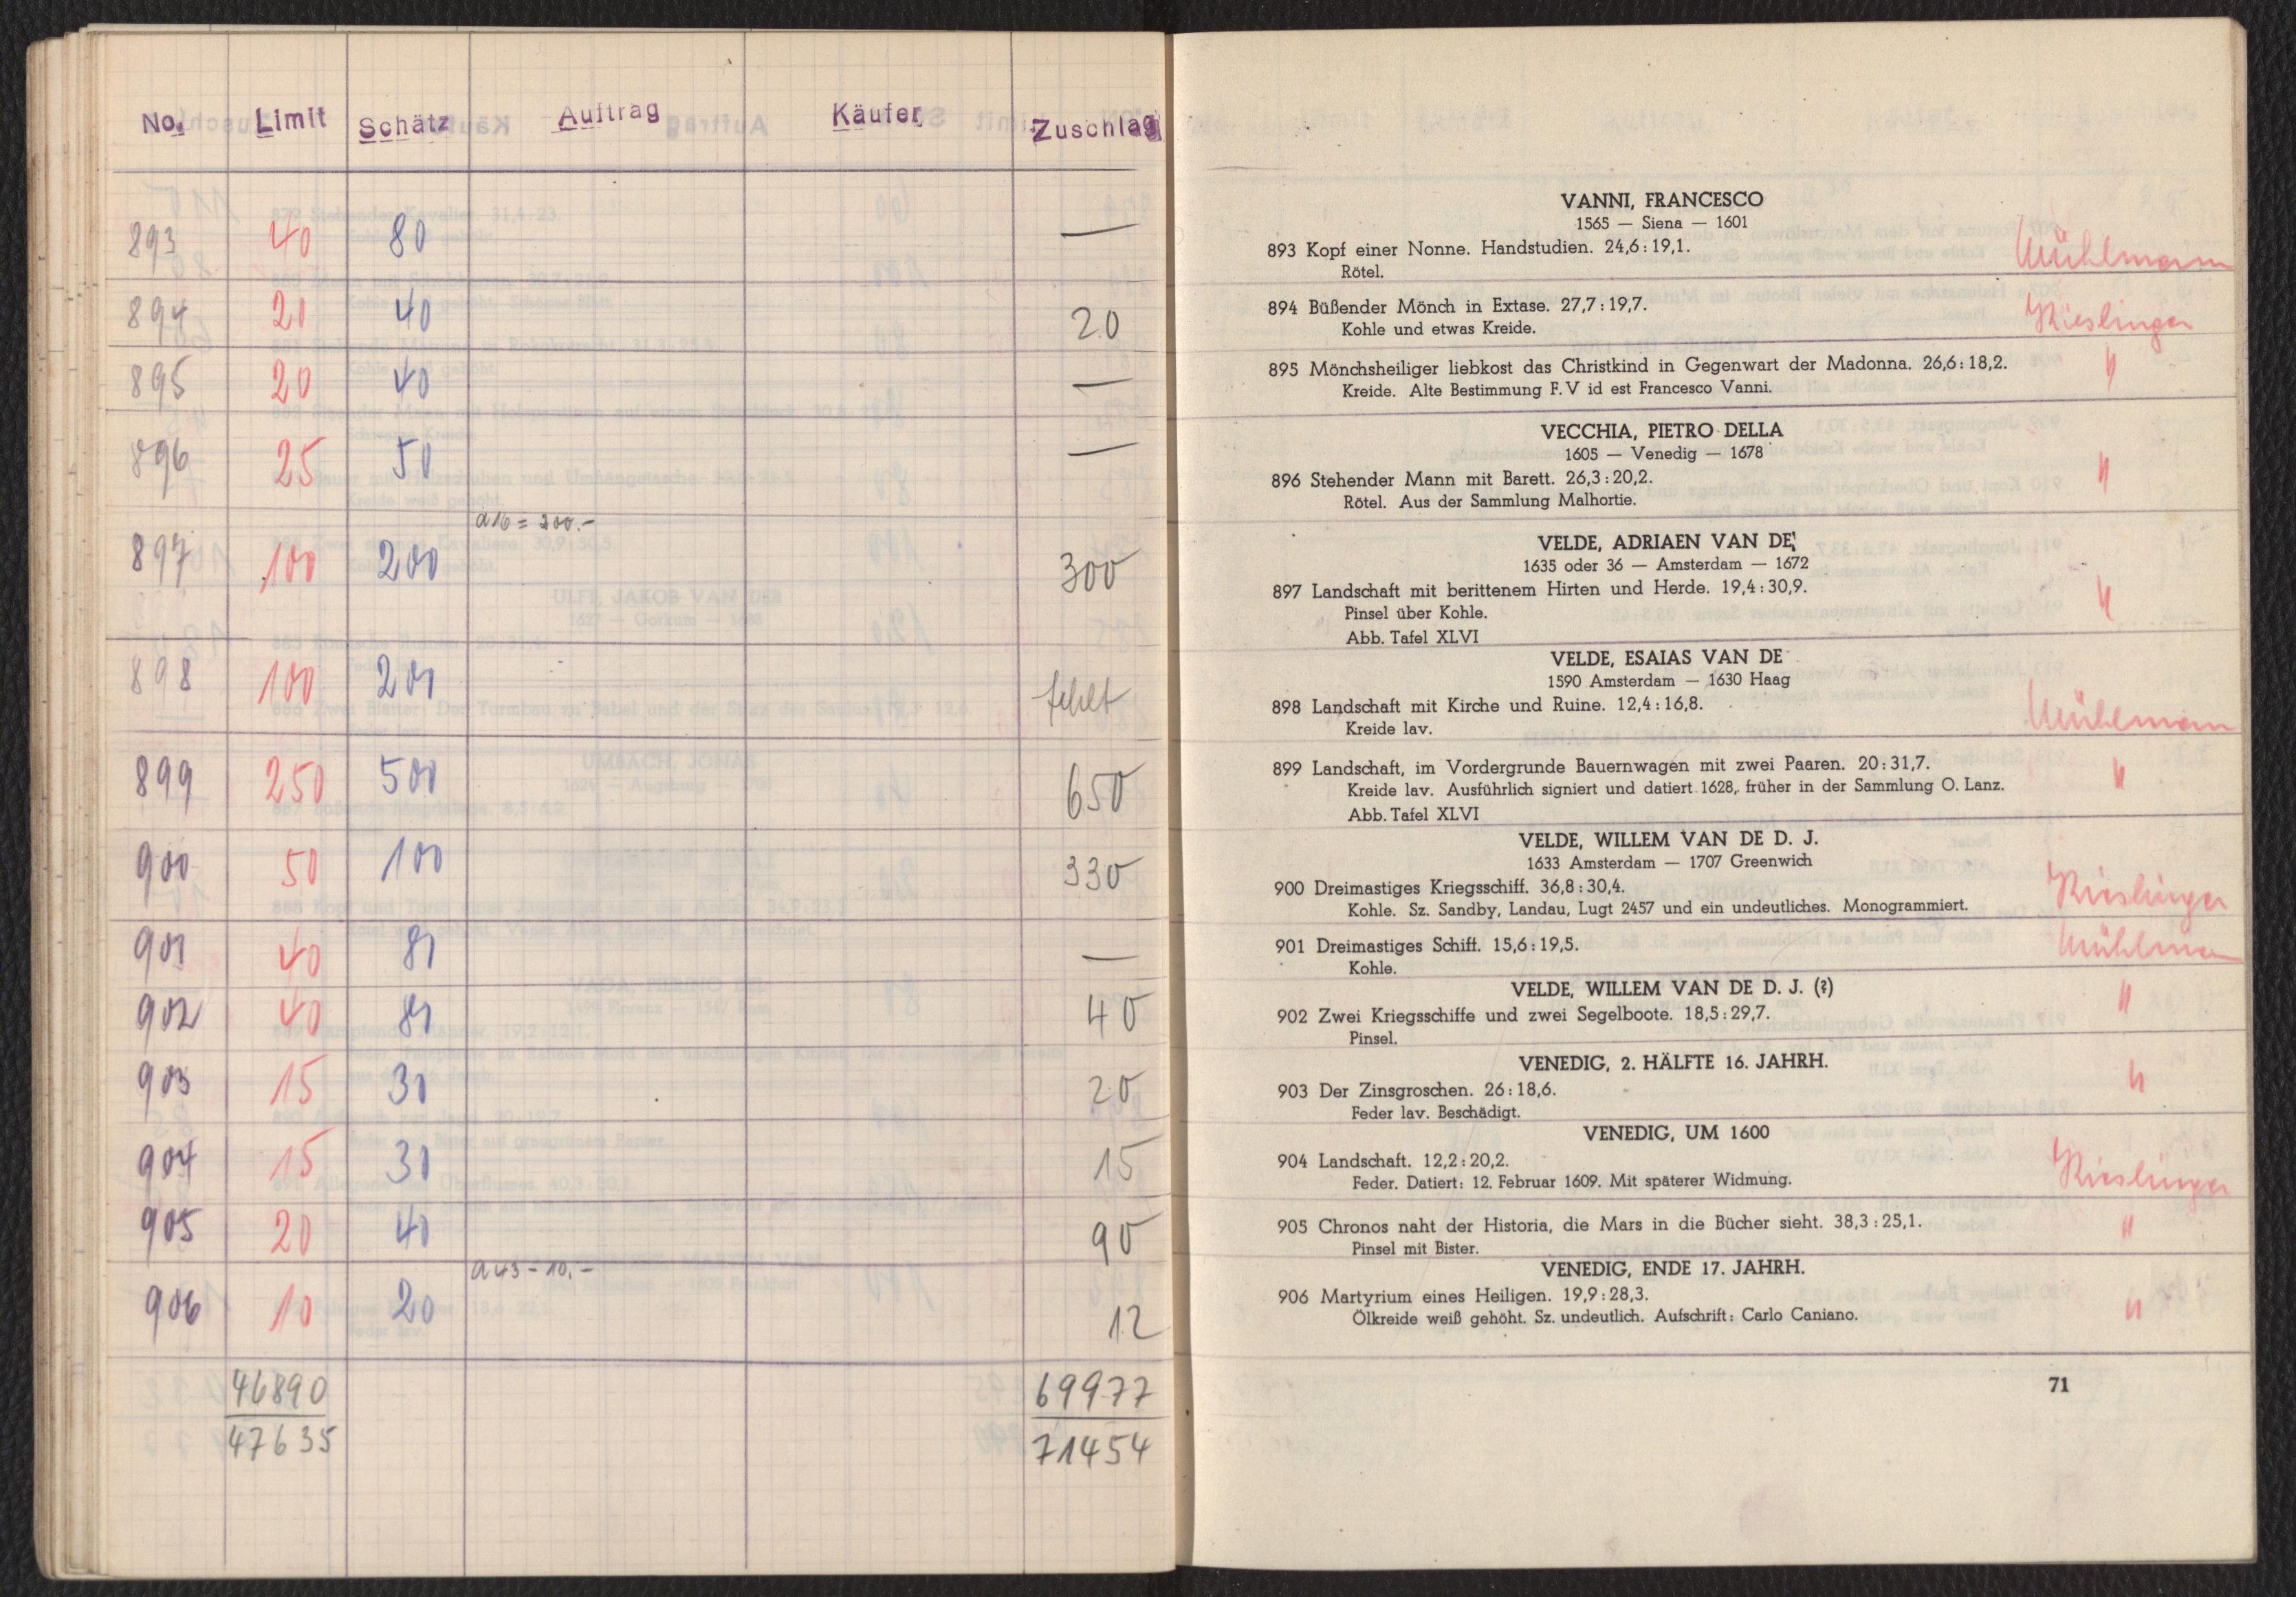 No. Limit Schätz Auftrag Käufer Zuschlag
893 40 80 —
894 20 40 20
895 20 40 —
896 25 50 —
a 16 = 200.-
897 100 200 300
898 100 200 fehlt
899 250 500 650
900 50 100 330
901 40 80 —
902 40 80 40
903 15 30 20
904 15 30 15
905 20 40 90
a 43 - 10.-
906 10 20 12
46890 69977
47635 71454
VANNI, FRANCESCO
1565 — Siena — 1601
893 Kopf einer Nonne. Handstudien. 24,6 : 19,1. Mühlmann
Rötel.
894 Büßender Mönch in Extase. 27,7 : 19,7. Kieslinger
Kohle und etwas Kreide.
895 Mönchsheiliger liebkost das Christkind in Gegenwart der Madonna. 26,6 : 18,2. "
Kreide. Alte Bestimmung F. V id est Francesco Vanni.
VECCHIA, PIETRO DELLA
1605 — Venedig — 1678
896 Stehender Mann mit Barett. 26,3 : 20,2. "
Rötel. Aus der Sammlung Malhortie.
VELDE, ADRIAEN VAN DE
1635 oder 36 — Amsterdam — 1672
897 Landschaft mit berittenem Hirten und Herde. 19,4 : 30,9. "
Pinsel über Kohle.
Abb. Tafel XLVI
VELDE, ESAIAS VAN DE
1590 Amsterdam — 1630 Haag
898 Landschaft mit Kirche und Ruine. 12,4 : 16,8. Mühlmann
Kreide lav.
899 Landschaft, im Vordergrunde Bauernwagen mit zwei Paaren. 20 : 31,7. "
Kreide lav. Ausführlich signiert und datiert 1628, früher in der Sammlung O. Lanz.
Abb. Tafel XLVI
VELDE, WILLEM VAN DE D. J.
1633 Amsterdam — 1707 Greenwich
900 Dreimastiges Kriegsschiff. 36,8 : 30,4. Kieslinger
Kohle. Sz. Sandby, Landau, Lugt 2457 und ein undeutliches. Monogrammiert.
901 Dreimastiges Schiff. 15,6 : 19,5. Mühlmann
Kohle.
VELDE, WILLEM VAN DE D. J. (?)
902 Zwei Kriegsschiffe und zwei Segelboote. 18,5 : 29,7. "
Pinsel.
VENEDIG, 2. HÄLFTE 16. JAHRH.
903 Der Zinsgroschen. 26 : 18,6. "
Feder lav. Beschädigt.
VENEDIG, UM 1600
904 Landschaft. 12,2 : 20,2. Kieslinger
Feder. Datiert: 12. Februar 1609. Mit späterer Widmung.
905 Chronos naht der Historia, die Mars in die Bücher sieht. 38,3 : 25,1. "
Pinsel mit Bister.
VENEDIG, ENDE 17. JAHRH.
906 Martyrium eines Heiligen. 19,9 : 28,3. "
Ölkreide weiß gehöht. Sz. undeutlich. Aufschrift: Carlo Caniano.
71